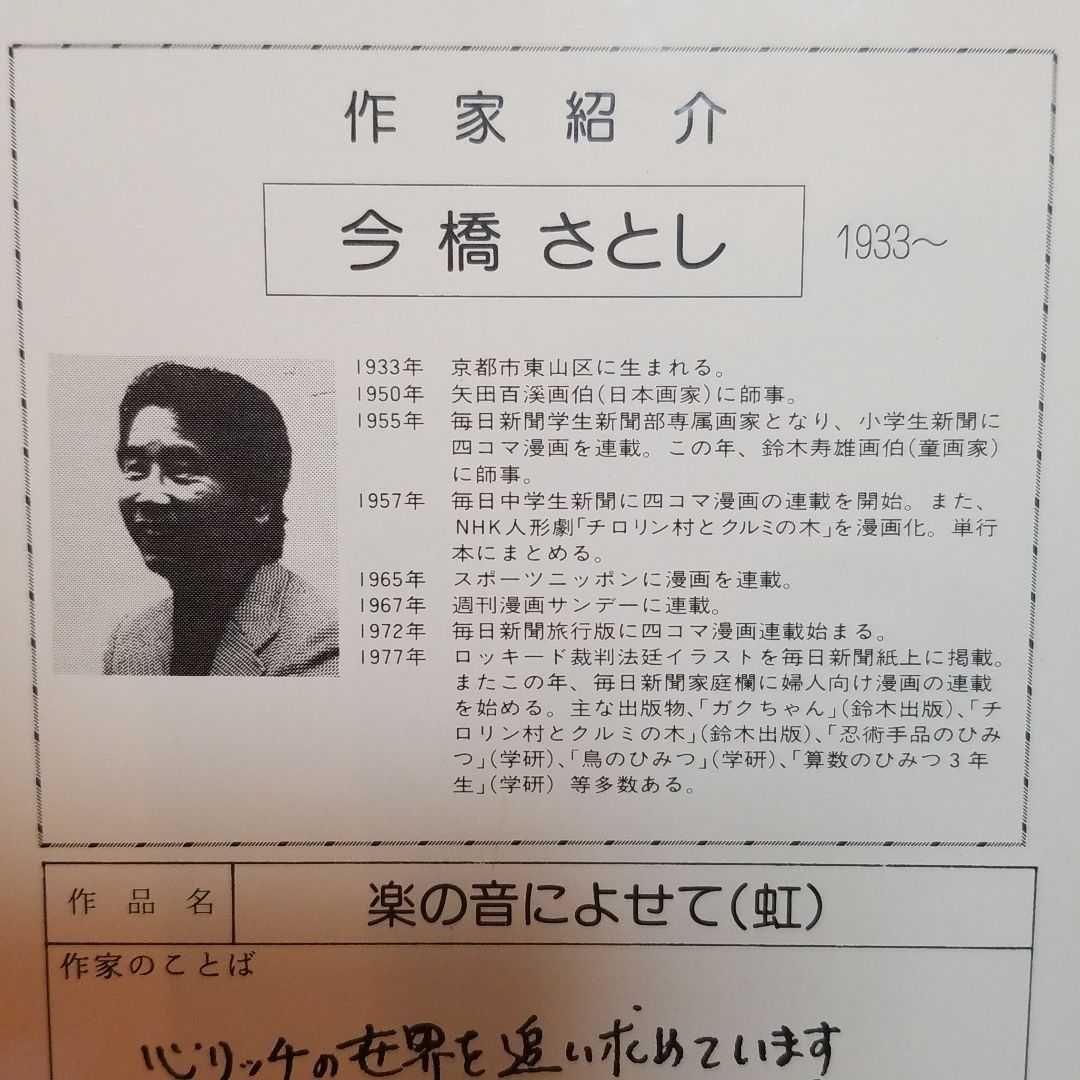 作家紹介
今橋さとし 1933〜
1933年 京都市東山区に生まれる。
1950年 矢田百溪画伯(日本画家)に師事。
1955年 毎日新聞学生新聞部専属画家となり、小学生新聞に
四コマ漫画を連載。この年、鈴木寿雄画伯(童画家)
に師事。
1957年 毎日中学生新聞に四コマ漫画の連載を開始。また、
NHK人形劇「チロリン村とクルミの木」を漫画化。単行
本にまとめる。
1965年 スポーツニッポンに漫画を連載。
1967年 週刊漫画サンデーに連載。
1972年 毎日新聞旅行版に四コマ漫画連載始まる。
1977年 ロッキード裁判法廷イラストを毎日新聞紙上に掲載。
またこの年、毎日新聞家庭欄に婦人向け漫画の連載
を始める。主な出版物、「ガクちゃん」(鈴木出版)、「チ
ロリン村とクルミの木」(鈴木出版)、「忍術手品のひみ
つ」(学研)、「鳥のひみつ」(学研)、「算数のひみつ3年
生」(学研) 等多数ある。
作品名 楽の音によせて(虹)
作家のことば
心リッチの世界を追い求めています